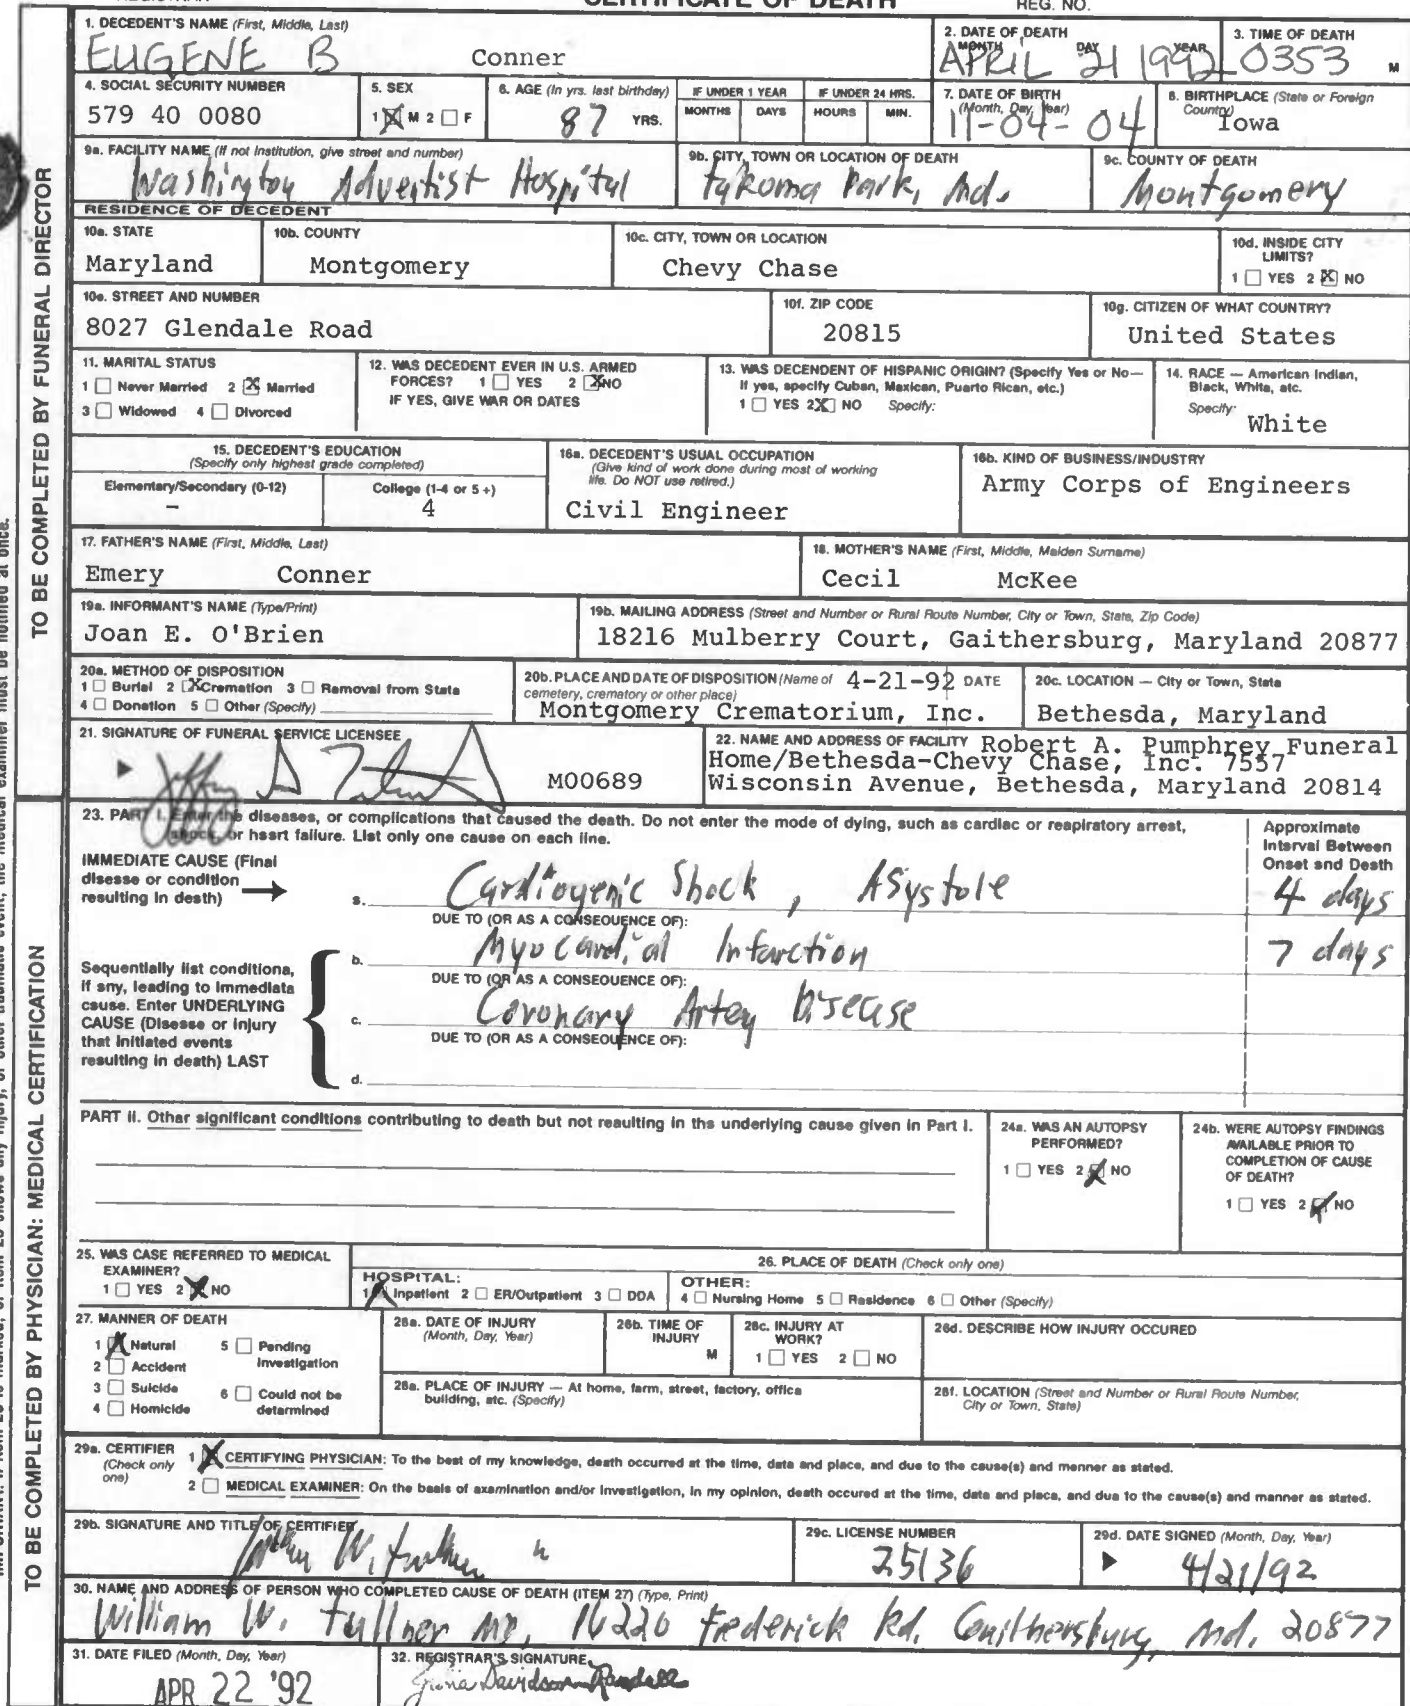 CERTIFICATE OF DEATH
REG. NO.
1. DECEDENT'S NAME (First, Middle, Last)
EUGENE B Conner
2. DATE OF DEATH
MONTH DAY YEAR
APRIL 21 1992
3. TIME OF DEATH
0353 M
4. SOCIAL SECURITY NUMBER
579 40 0080
5. SEX
1 X M 2 ☐ F
6. AGE (In yrs. last birthday)
87 YRS.
IF UNDER 1 YEAR
MONTHS DAYS
IF UNDER 24 HRS.
HOURS MIN.
7. DATE OF BIRTH
(Month, Day, Year)
11-04-04
8. BIRTHPLACE (State or Foreign
Country)
Iowa
9a. FACILITY NAME (If not institution, give street and number)
Washington Adventist Hospital
9b. CITY, TOWN OR LOCATION OF DEATH
Takoma Park, Md.
9c. COUNTY OF DEATH
Montgomery
RESIDENCE OF DECEDENT
10a. STATE
Maryland
10b. COUNTY
Montgomery
10c. CITY, TOWN OR LOCATION
Chevy Chase
10d. INSIDE CITY
LIMITS?
1 ☐ YES 2 X NO
10e. STREET AND NUMBER
8027 Glendale Road
10f. ZIP CODE
20815
10g. CITIZEN OF WHAT COUNTRY?
United States
11. MARITAL STATUS
1 ☐ Never Married 2 X Married
3 ☐ Widowed 4 ☐ Divorced
12. WAS DECEDENT EVER IN U.S. ARMED
FORCES? 1 ☐ YES 2 X NO
IF YES, GIVE WAR OR DATES
13. WAS DECENDENT OF HISPANIC ORIGIN? (Specify Yes or No—
If yes, specify Cuban, Mexican, Puerto Rican, etc.)
1 ☐ YES 2 X NO Specify:
14. RACE — American Indian,
Black, White, etc.
Specify:
White
15. DECEDENT'S EDUCATION
(Specify only highest grade completed)
Elementary/Secondary (0-12)
-
College (1-4 or 5+)
4
16a. DECEDENT'S USUAL OCCUPATION
(Give kind of work done during most of working
life. Do NOT use retired.)
Civil Engineer
16b. KIND OF BUSINESS/INDUSTRY
Army Corps of Engineers
17. FATHER'S NAME (First, Middle, Last)
Emery Conner
18. MOTHER'S NAME (First, Middle, Maiden Surname)
Cecil McKee
19a. INFORMANT'S NAME (Type/Print)
Joan E. O'Brien
19b. MAILING ADDRESS (Street and Number or Rural Route Number, City or Town, State, Zip Code)
18216 Mulberry Court, Gaithersburg, Maryland 20877
20a. METHOD OF DISPOSITION
1 ☐ Burial 2 X Cremation 3 ☐ Removal from State
4 ☐ Donation 5 ☐ Other (Specify)
20b. PLACE AND DATE OF DISPOSITION (Name of 4-21-92 DATE
cemetery, crematory or other place)
Montgomery Crematorium, Inc.
20c. LOCATION — City or Town, State
Bethesda, Maryland
21. SIGNATURE OF FUNERAL SERVICE LICENSEE
M00689
22. NAME AND ADDRESS OF FACILITY Robert A. Pumphrey Funeral
Home/Bethesda-Chevy Chase, Inc. 7557
Wisconsin Avenue, Bethesda, Maryland 20814
23. PART I. Enter the diseases, or complications that caused the death. Do not enter the mode of dying, such as cardiac or respiratory arrest,
shock, or heart failure. List only one cause on each line.
Approximate
Interval Between
Onset and Death
IMMEDIATE CAUSE (Final
disease or condition
resulting in death)
a. Cardiogenic Shock, Asystole 4 days
DUE TO (OR AS A CONSEQUENCE OF):
b. Myocardial Infarction 7 days
DUE TO (OR AS A CONSEQUENCE OF):
c. Coronary Artey Disease
DUE TO (OR AS A CONSEQUENCE OF):
d.
Sequentially list conditions,
if any, leading to immediate
cause. Enter UNDERLYING
CAUSE (Disease or injury
that initiated events
resulting in death) LAST
PART II. Other significant conditions contributing to death but not resulting in the underlying cause given in Part I.
24a. WAS AN AUTOPSY
PERFORMED?
1 ☐ YES 2 X NO
24b. WERE AUTOPSY FINDINGS
AVAILABLE PRIOR TO
COMPLETION OF CAUSE
OF DEATH?
1 ☐ YES 2 X NO
25. WAS CASE REFERRED TO MEDICAL
EXAMINER?
1 ☐ YES 2 X NO
26. PLACE OF DEATH (Check only one)
HOSPITAL:
1 X Inpatient 2 ☐ ER/Outpatient 3 ☐ DOA
OTHER:
4 ☐ Nursing Home 5 ☐ Residence 6 ☐ Other (Specify)
27. MANNER OF DEATH
1 X Natural 5 ☐ Pending
2 ☐ Accident Investigation
3 ☐ Suicide 6 ☐ Could not be
4 ☐ Homicide determined
28a. DATE OF INJURY
(Month, Day, Year)
28b. TIME OF
INJURY
M
28c. INJURY AT
WORK?
1 ☐ YES 2 ☐ NO
28d. DESCRIBE HOW INJURY OCCURED
28e. PLACE OF INJURY — At home, farm, street, factory, office
building, etc. (Specify)
28f. LOCATION (Street and Number or Rural Route Number,
City or Town, State)
29a. CERTIFIER
(Check only
one)
1 X CERTIFYING PHYSICIAN: To the best of my knowledge, death occurred at the time, date and place, and due to the cause(s) and manner as stated.
2 ☐ MEDICAL EXAMINER: On the basis of examination and/or investigation, in my opinion, death occured at the time, date and place, and due to the cause(s) and manner as stated.
29b. SIGNATURE AND TITLE OF CERTIFIER
29c. LICENSE NUMBER
25136
29d. DATE SIGNED (Month, Day, Year)
4/21/92
30. NAME AND ADDRESS OF PERSON WHO COMPLETED CAUSE OF DEATH (ITEM 27) (Type, Print)
William W. Fullner MD, 16220 Frederick Rd. Gaithersburg, Md. 20877
31. DATE FILED (Month, Day, Year)
APR 22 '92
32. REGISTRAR'S SIGNATURE
Julia Davidson-Randall
TO BE COMPLETED BY FUNERAL DIRECTOR
TO BE COMPLETED BY PHYSICIAN: MEDICAL CERTIFICATION